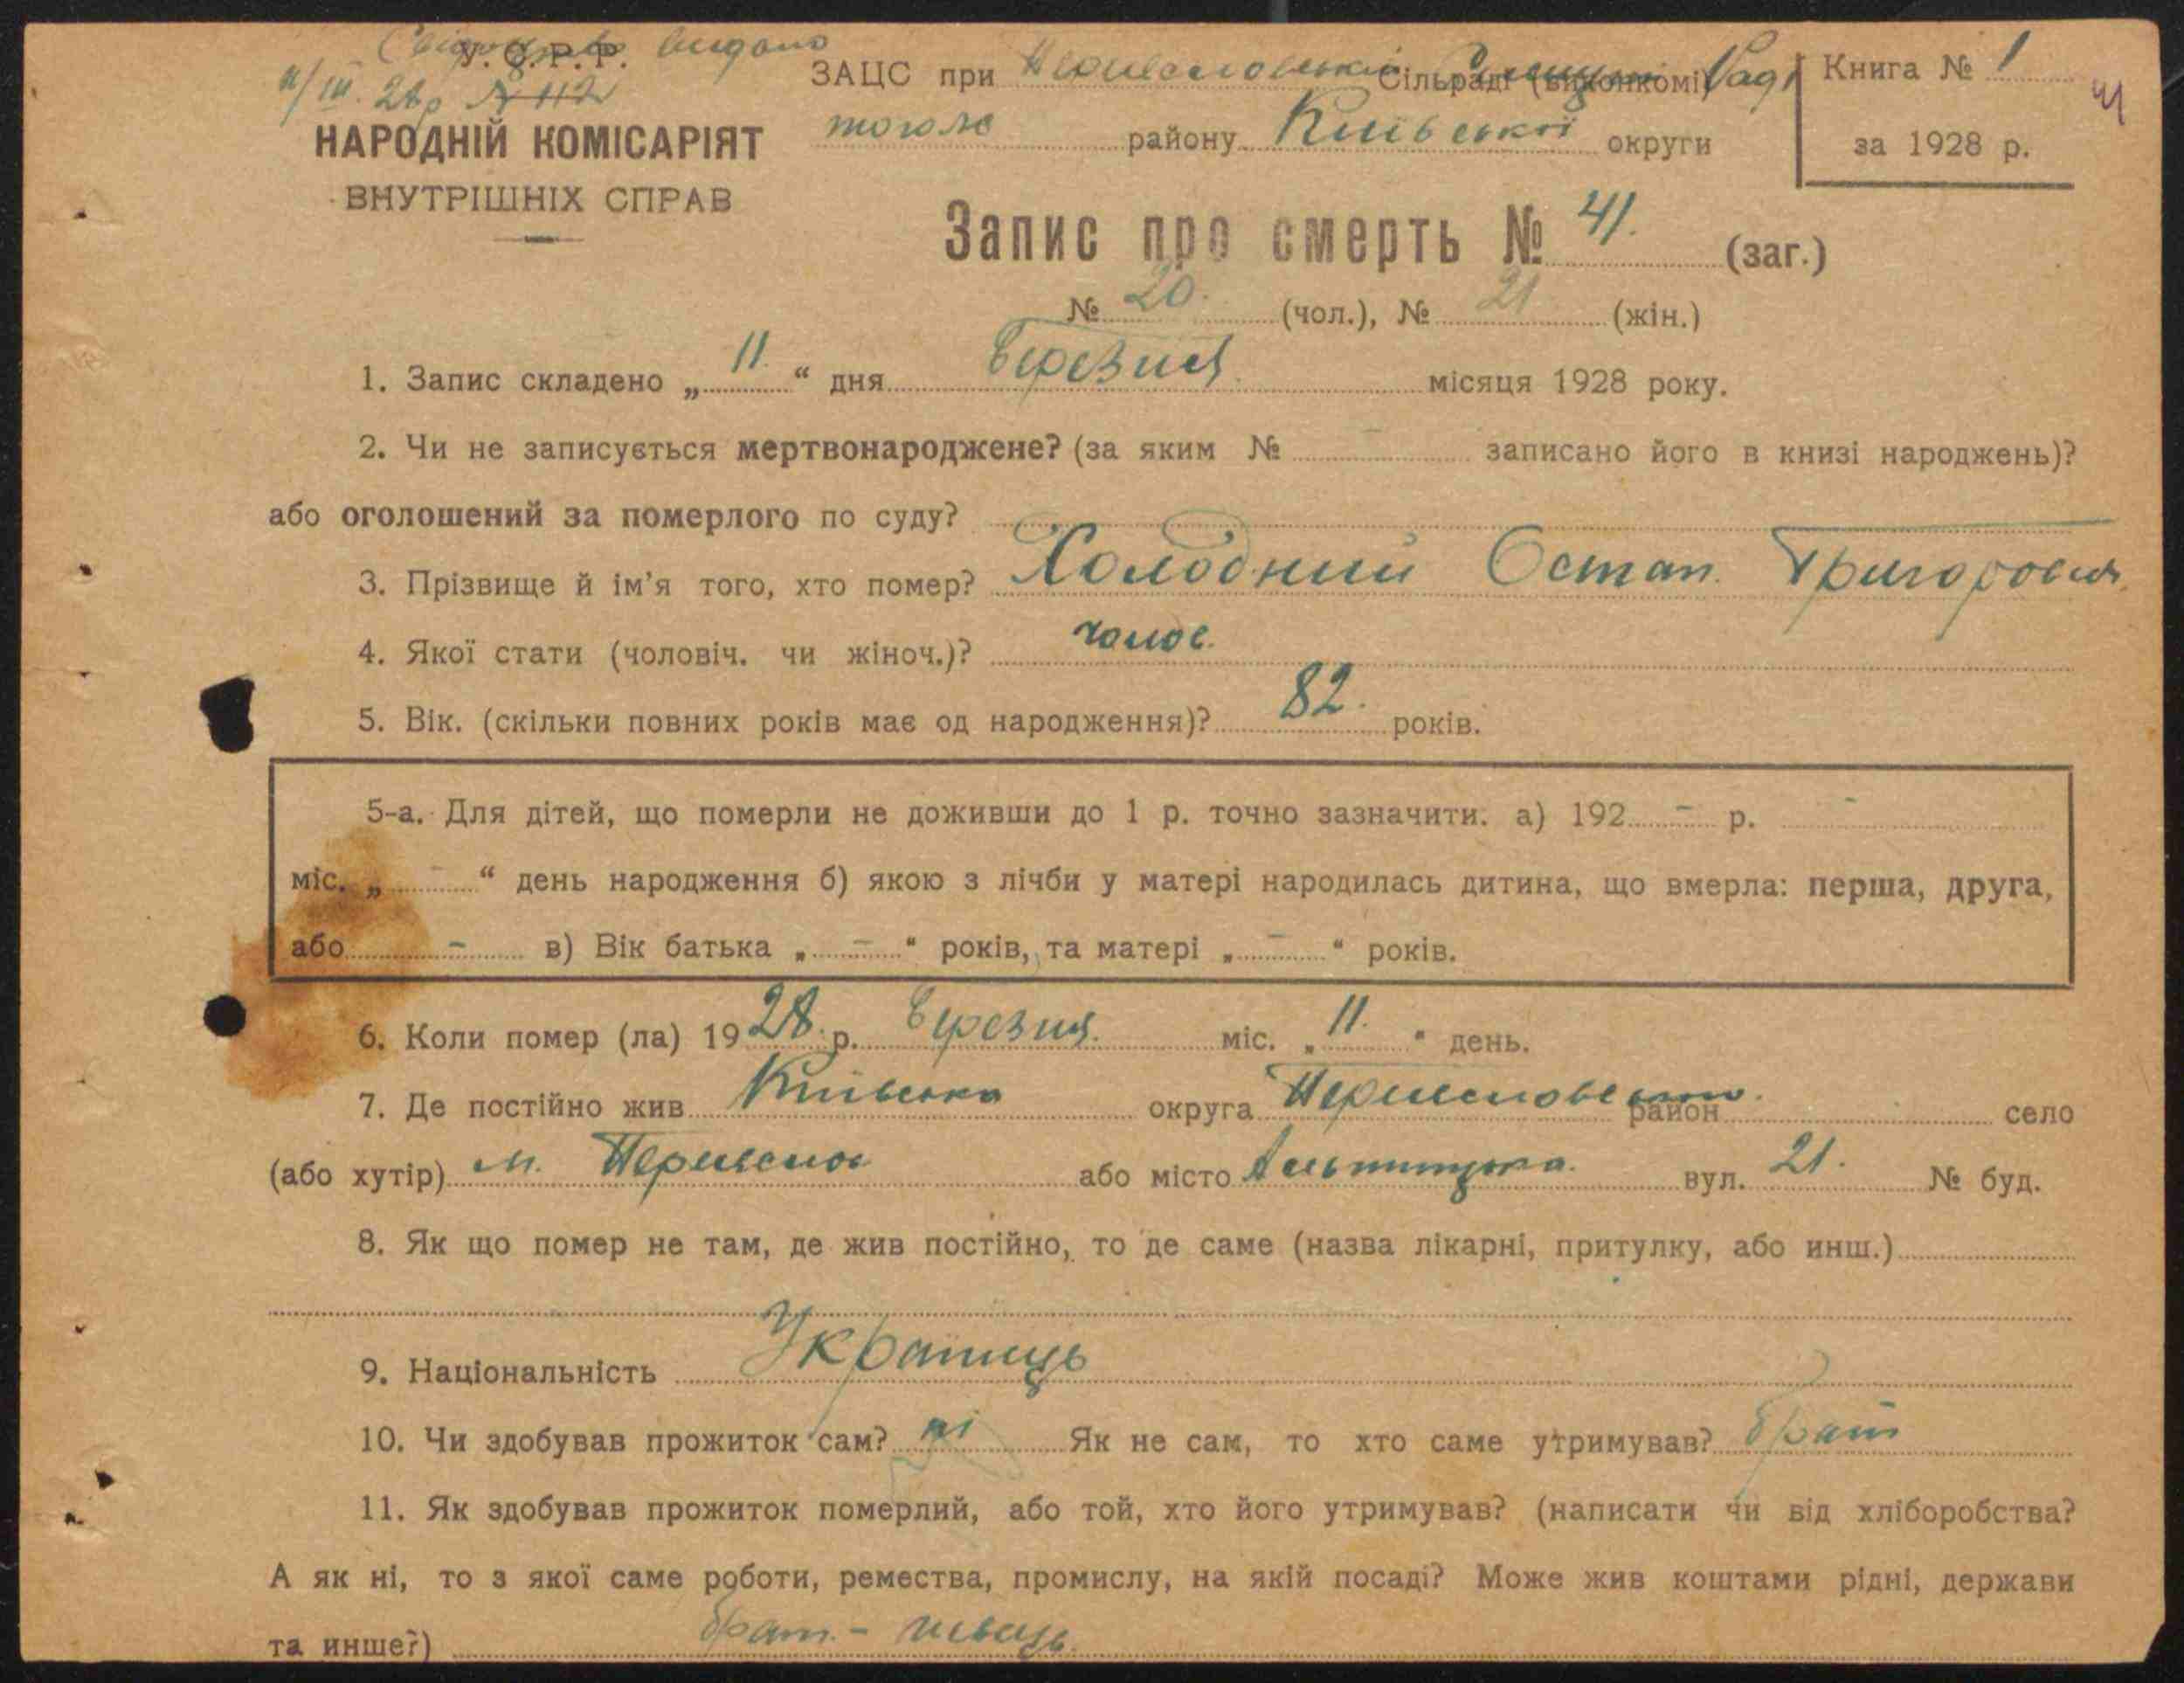 Свідоцтво видано
У.С.Р.Р.
11/III. 28р № 112
НАРОДНІЙ КОМІСАРІЯТ
ВНУТРІШНІХ СПРАВ
ЗАЦС при Переяславській Сільраді (виконкомі) Раді
того ж району Київської округи
Книга № 1
за 1928 р.
41
Запис про смерть № 41. (заг.)
№ 20. (чол.), № 21 (жін.)
1. Запис складено „ 11. “ дня березня місяця 1928 року.
2. Чи не записується мертвонароджене? (за яким № – записано його в книзі народжень)?
або оголошений за померлого по суду?
3. Прізвище й ім'я того, хто помер? Холодний Остап Григорович
4. Якої стати (чоловіч. чи жіноч.)? чолов.
5. Вік. (скільки повних років має од народження)? 82. років.
5-а. Для дітей, що померли не доживши до 1 р. точно зазначити: а) 192 – р. –
міс. „ – “ день народження б) якою з лічби у матері народилась дитина, що вмерла: перша, друга,
або – в) Вік батька „ – “ років, та матері „ – “ років.
6. Коли помер (ла) 1928. р. березня. міс. „ 11. “ день.
7. Де постійно жив Київська округа Переяславський район село
(або хутір) м. Переяслов або місто Альтицька. вул. 21. № буд.
8. Як що помер не там, де жив постійно, то де саме (назва лікарні, притулку, або инш.)
9. Національність Українець
10. Чи здобував прожиток сам? ні Як не сам, то хто саме утримував? брат
11. Як здобував прожиток померлий, або той, хто його утримував? (написати чи від хліборобства?
А як ні, то з якої саме роботи, ремества, промислу, на якій посаді? Може жив коштами рідні, держави
та инше?) брат – швець.